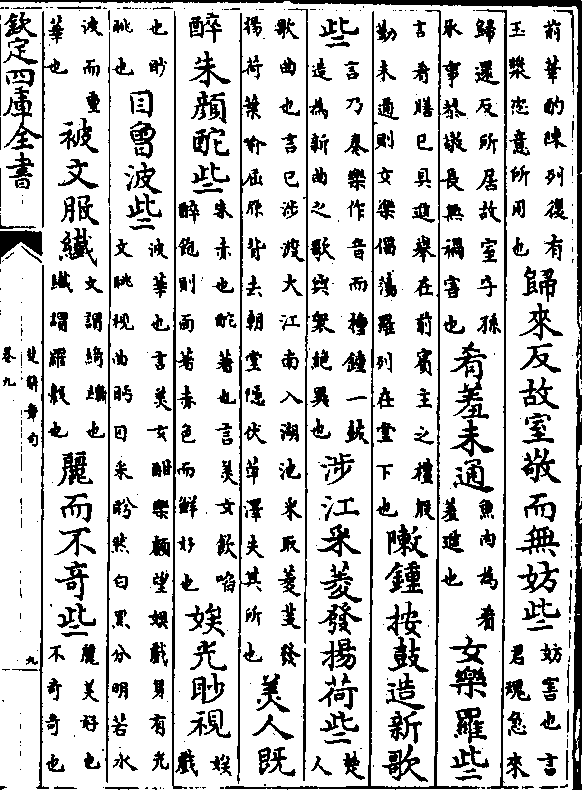 前華酌陳列復有
玉漿恣意所用也
歸來反故室敬而無妨些
妨害也言
君魂急來
歸還反所居故室子孫
承事恭敬長無禍害也
肴羞未通
魚肉為肴
羞進也
女樂羅些
言肴膳已具進舉在前賓主之禮殷
勤未通則女樂倡蕩羅列在堂下也
敶鍾按鼓造新歌
些
言乃奏樂作音而種鍾一鼓
造為新曲之歌與衆絕異也
涉江采菱發揚荷些
楚
人
歌曲也言已涉渡大江南入湖池采取菱芰發
揚荷葉喻屈原背去朝堂隱伏草澤失其所也
美人既
醉朱顔酡些
朱赤也酡著也言美女飲啗
醉飽則面著赤色而鮮好也
娭光眇視
娭
戲
也眇
眺也
目曾波些
波華也言美女酣樂顧望娭戲身有光
文眺視曲眄目采盼然白黑分明若水
波而重
華也
被文服纖
文謂綺繡也
纖謂羅縠也
麗而不奇些
麗美好也
不奇奇也
欽定四庫全書
楚辭章句
卷九
九